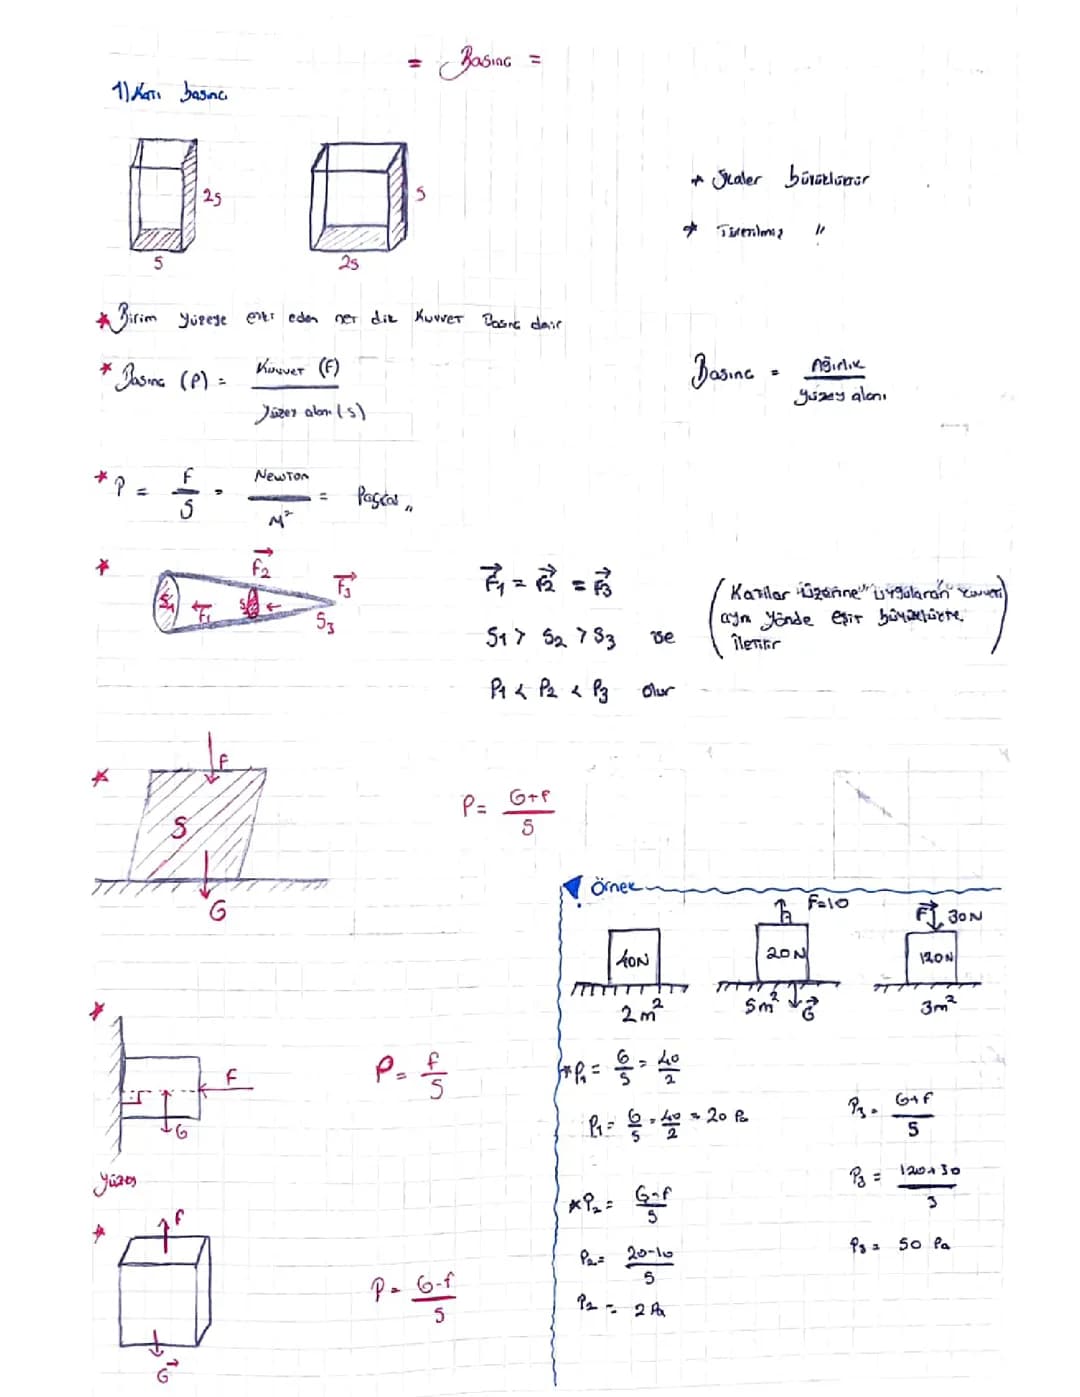 = Basınc =
1) Katı basıncı
2s
s
s
2s
* Skaler büyüklüktür
* Türetilmiş "
* Birim yüzeye etki eden net dik kuvvet Basınc denir
* Basınc (P) = Kuvvet (F) / Yüzey alanı (s)
Basınc = Ağırlık / yüzey alanı
* P = F / S = Newton / M² = Paskal
*
F₂
F₃
S₁
F₁
S₂
S₃
F₁ = F₂ = F₃
S₁ > S₂ > S₃ ve
P₁ < P₂ < P₃ olur
(Katılar üzerine uygulanan kuvveti
aynı yönde eşit büyüklükte
iletir)
*
F
S
G
P = G+F / S
Örnek
40N
2m²
F=10
20N
5m²
G
F 30N
120N
3m²
*
F
G
Yüzey
P = F / S
*P₁ = G / S = 40 / 2
P₁ = G / S = 40 / 2 = 20 Pa
*P₂ = G-F / S
P₂ = 20-10 / 5
P₂ = 2 Pa
P₃ = G+F / S
P₃ = 120+30 / 3
P₃ = 50 Pa
*
F
G
P = G-F / S